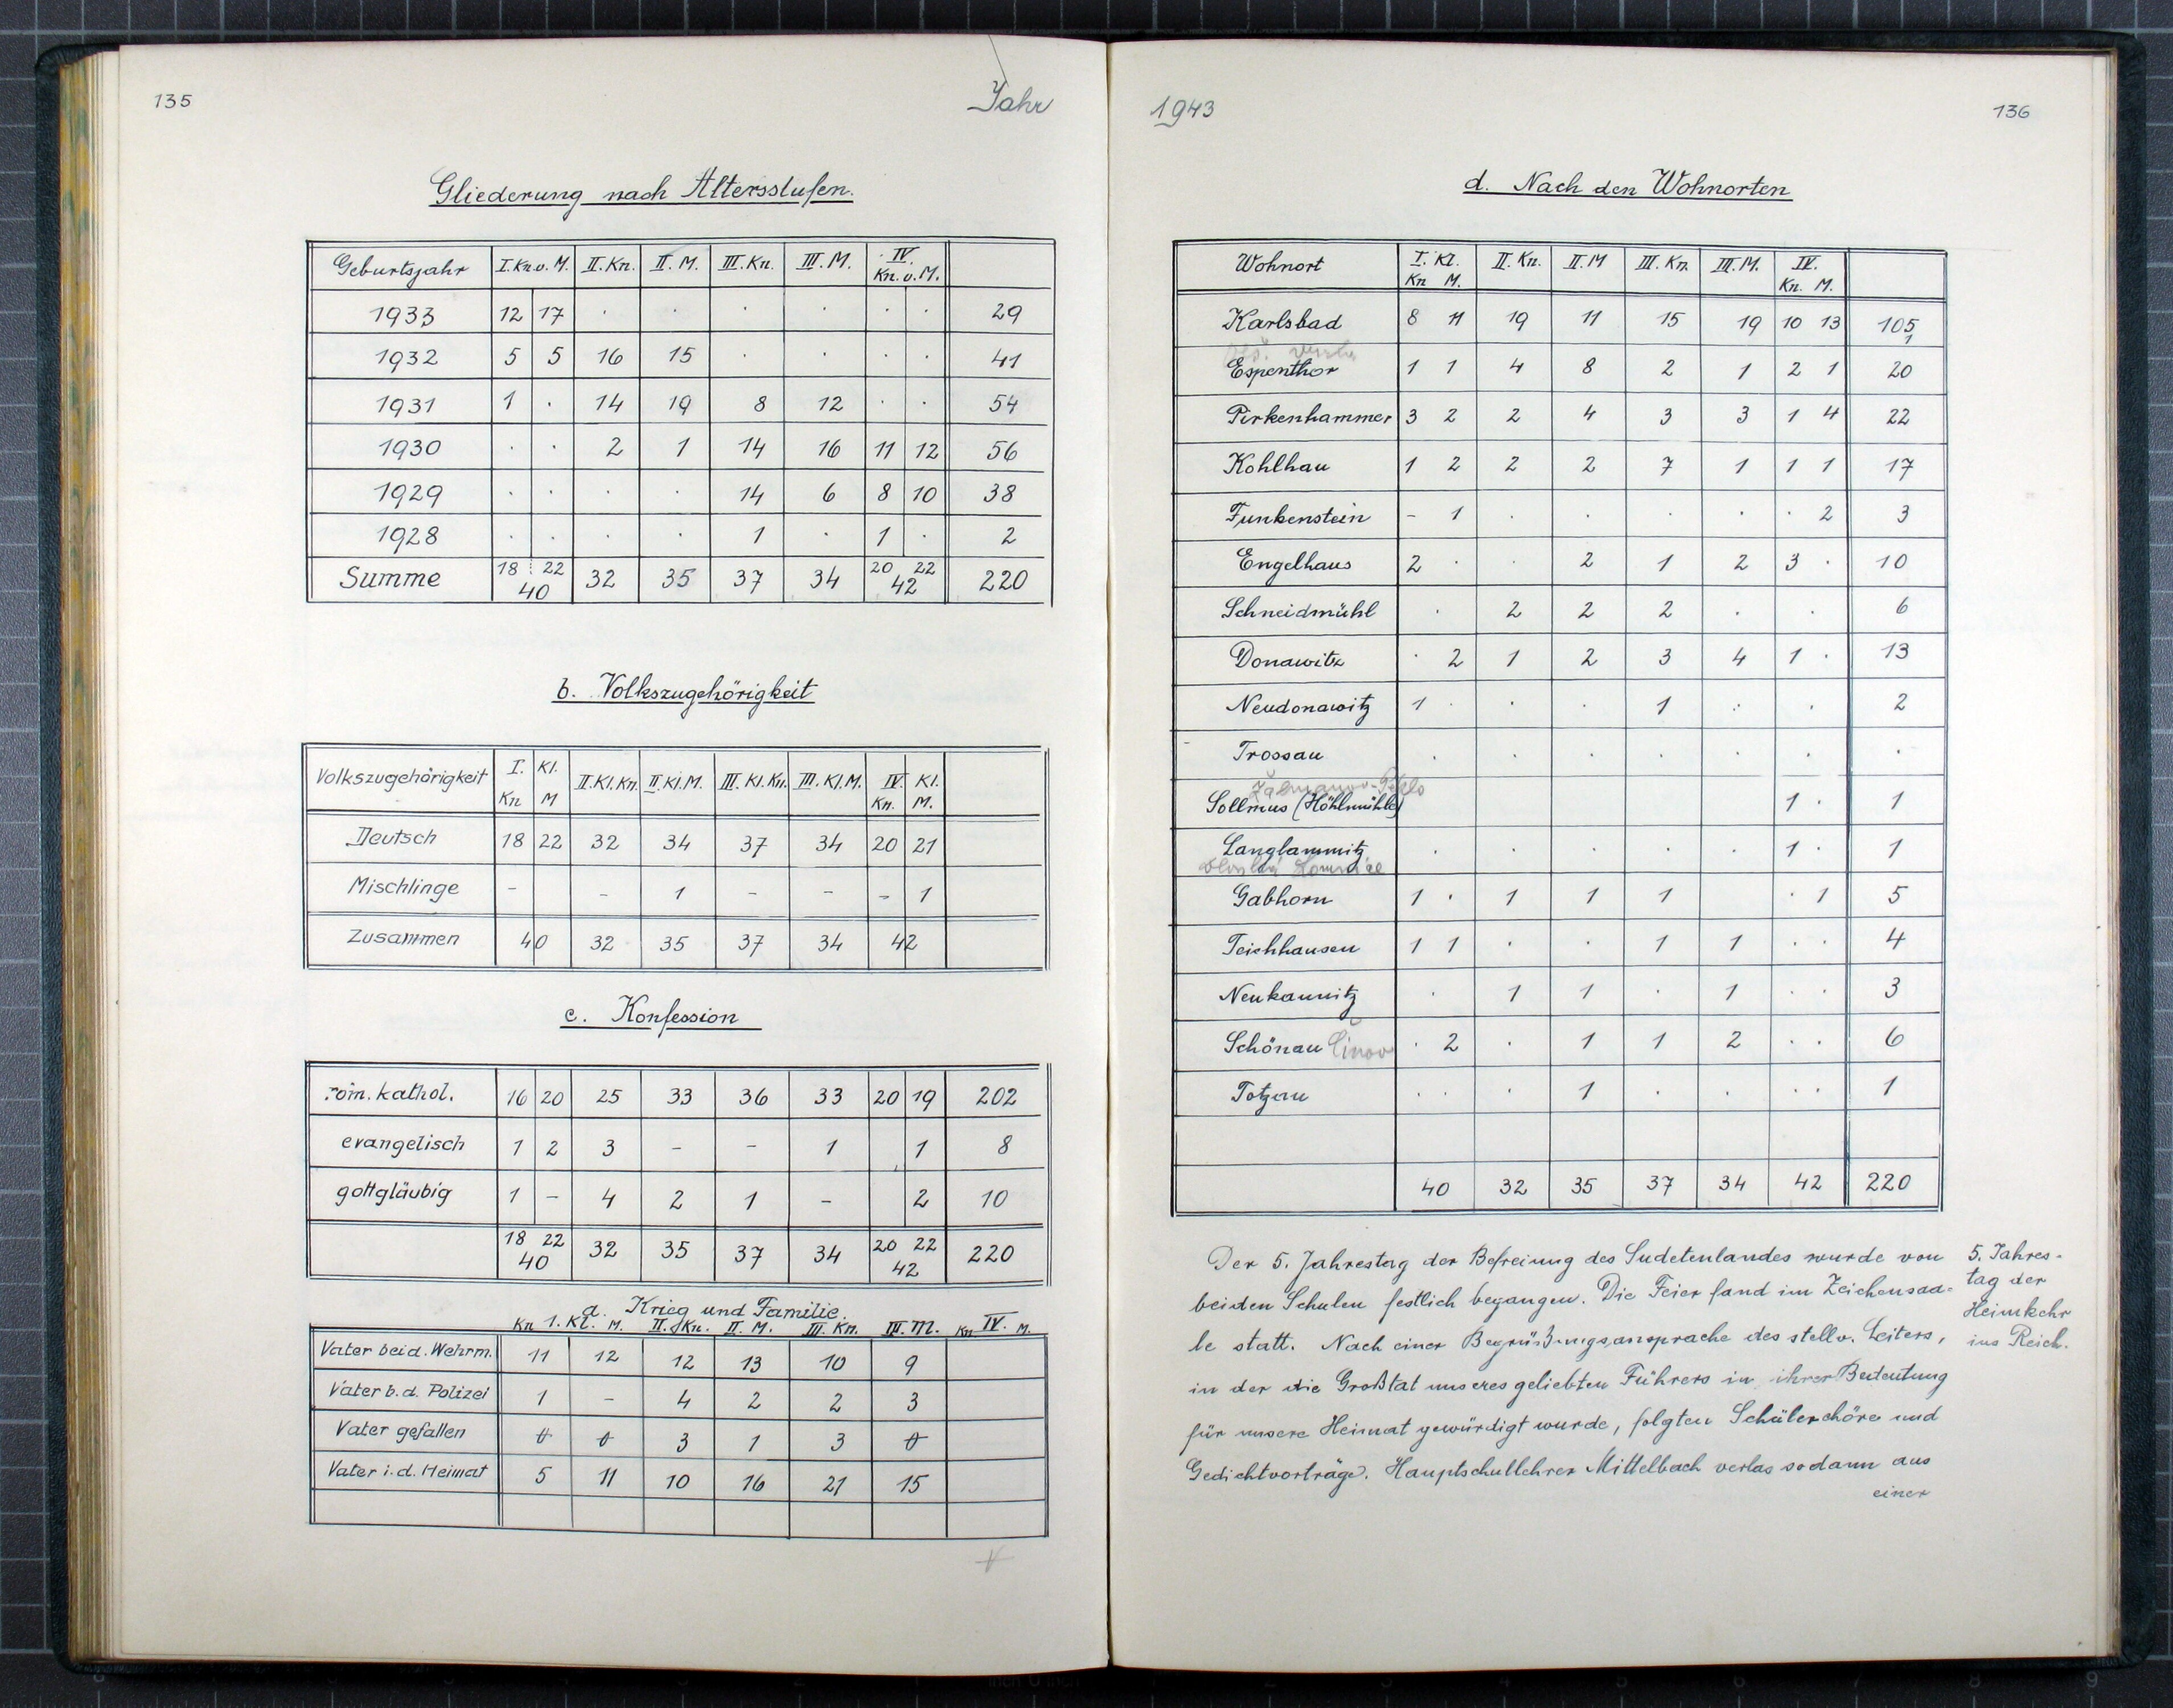 135
Jahr
Gliederung nach Altersstufen.
Geburtsjahr I. Kn. u. M. II. Kn. II. M. III. Kn. III. M. IV. Kn. u. M.
1933 12 17 . . . . . . 29
1932 5 5 16 15 . . . . 41
1931 1 . 14 19 8 12 . . 54
1930 . . 2 1 14 16 11 12 56
1929 . . . . 14 6 8 10 38
1928 . . . . 1 . 1 . 2
Summe 18 22 40 32 35 37 34 20 22 42 220
b. Volkszugehörigkeit
Volkszugehörigkeit I. Kl. Kn M II. Kl. Kn. II. Kl. M. III. Kl. Kn. III. Kl. M. IV. Kl. Kn. M.
Deutsch 18 22 32 34 37 34 20 21
Mischlinge - - 1 - - - 1
Zusammen 40 32 35 37 34 42
c. Konfession
röm. kathol. 16 20 25 33 36 33 20 19 202
evangelisch 1 2 3 - - 1 1 8
gottgläubig 1 - 4 2 1 - 2 10
18 22 40 32 35 37 34 20 22 42 220
d. Krieg und Familie.
Kn 1. Kl. M. II. Kn. II. M. III. Kn. III. M. Kn IV. M.
Vater bei d. Wehrm. 11 12 12 13 10 9
Vater b. d. Polizei 1 - 4 2 2 3
Vater gefallen 0 0 3 1 3 0
Vater i. d. Heimat 5 11 10 16 21 15
1943
136
d. Nach den Wohnorten
Wohnort I. Kl. Kn M. II. Kn. II. M III. Kn. III. M. IV. Kn. M.
Karlsbad 8 11 19 11 15 19 10 13 105
Espenthor 1 1 4 8 2 1 2 1 20
Pirkenhammer 3 2 2 4 3 3 1 4 22
Kohlhau 1 2 2 2 7 1 1 1 17
Funkenstein - 1 . . . . . 2 3
Engelhaus 2 . . 2 1 2 3 . 10
Schneidmühl . 2 2 2 . . 6
Donawitz . 2 1 2 3 4 1 . 13
Neudonawitz 1 . . . 1 . . 2
Trossau . . . . . . .
Sollmus (Höhlmühle) 1 . 1
Langlammitz . . . . . 1 . 1
Gabhorn 1 . 1 1 1 . 1 5
Teichhausen 1 1 . . 1 1 . . 4
Neukaunitz . 1 1 . 1 . . 3
Schönau Činov . 2 . 1 1 2 . . 6
Totzau . . . 1 . . . . 1
40 32 35 37 34 42 220
Der 5. Jahrestag der Befreiung des Sudetenlandes wurde von
beiden Schulen festlich begangen. Die Feier fand im Zeichensaa-
le statt. Nach einer Begrüßungsansprache des stellv. Leiters,
in der die Großtat unseres geliebten Führers in ihrer Bedeutung
für unsere Heimat gewürdigt wurde, folgten Schülerchöre und
Gedichtvorträge. Hauptschullehrer Mittelbach verlas sodann aus
einer
5. Jahres-
tag der
Heimkehr
ins Reich.